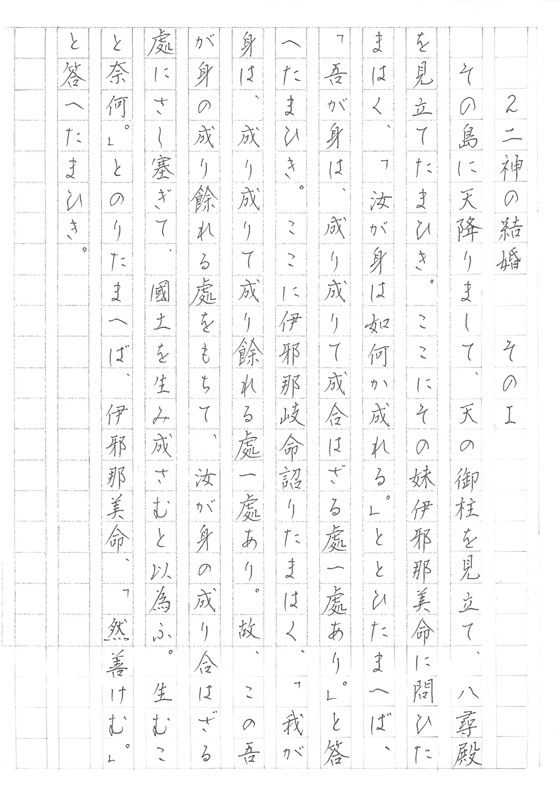 2二神の結婚　その1
その島に天降りまして、天の御柱を見立て、八尋殿
を見立てたまひき。ここにその妹伊邪那美命に問ひた
まはく、「汝が身は如何か成れる。」ととひたまへば、
「吾が身は、成り成りて成合はざる處一處あり。」と答
へたまひき。ここに伊邪那岐命詔りたまはく、「我が
身は、成り成りて成り餘れる處一處あり。故、この吾
が身の成り餘れる處をもちて、汝が身の成り合はざる
處にさし塞ぎて、國土を生み成さむと以為ふ。生むこ
と奈何。」とのりたまへば、伊邪那美命、「然善けむ。」
と答へたまひき。